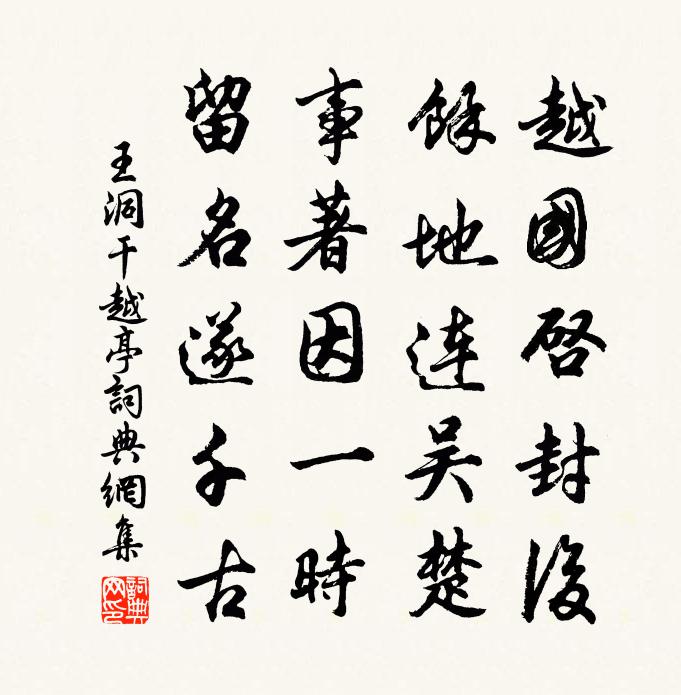 越國啓封後
餘地連吴楚
事著因一時
留名遂千古
王洞干越亭詞典網集
詞典網印